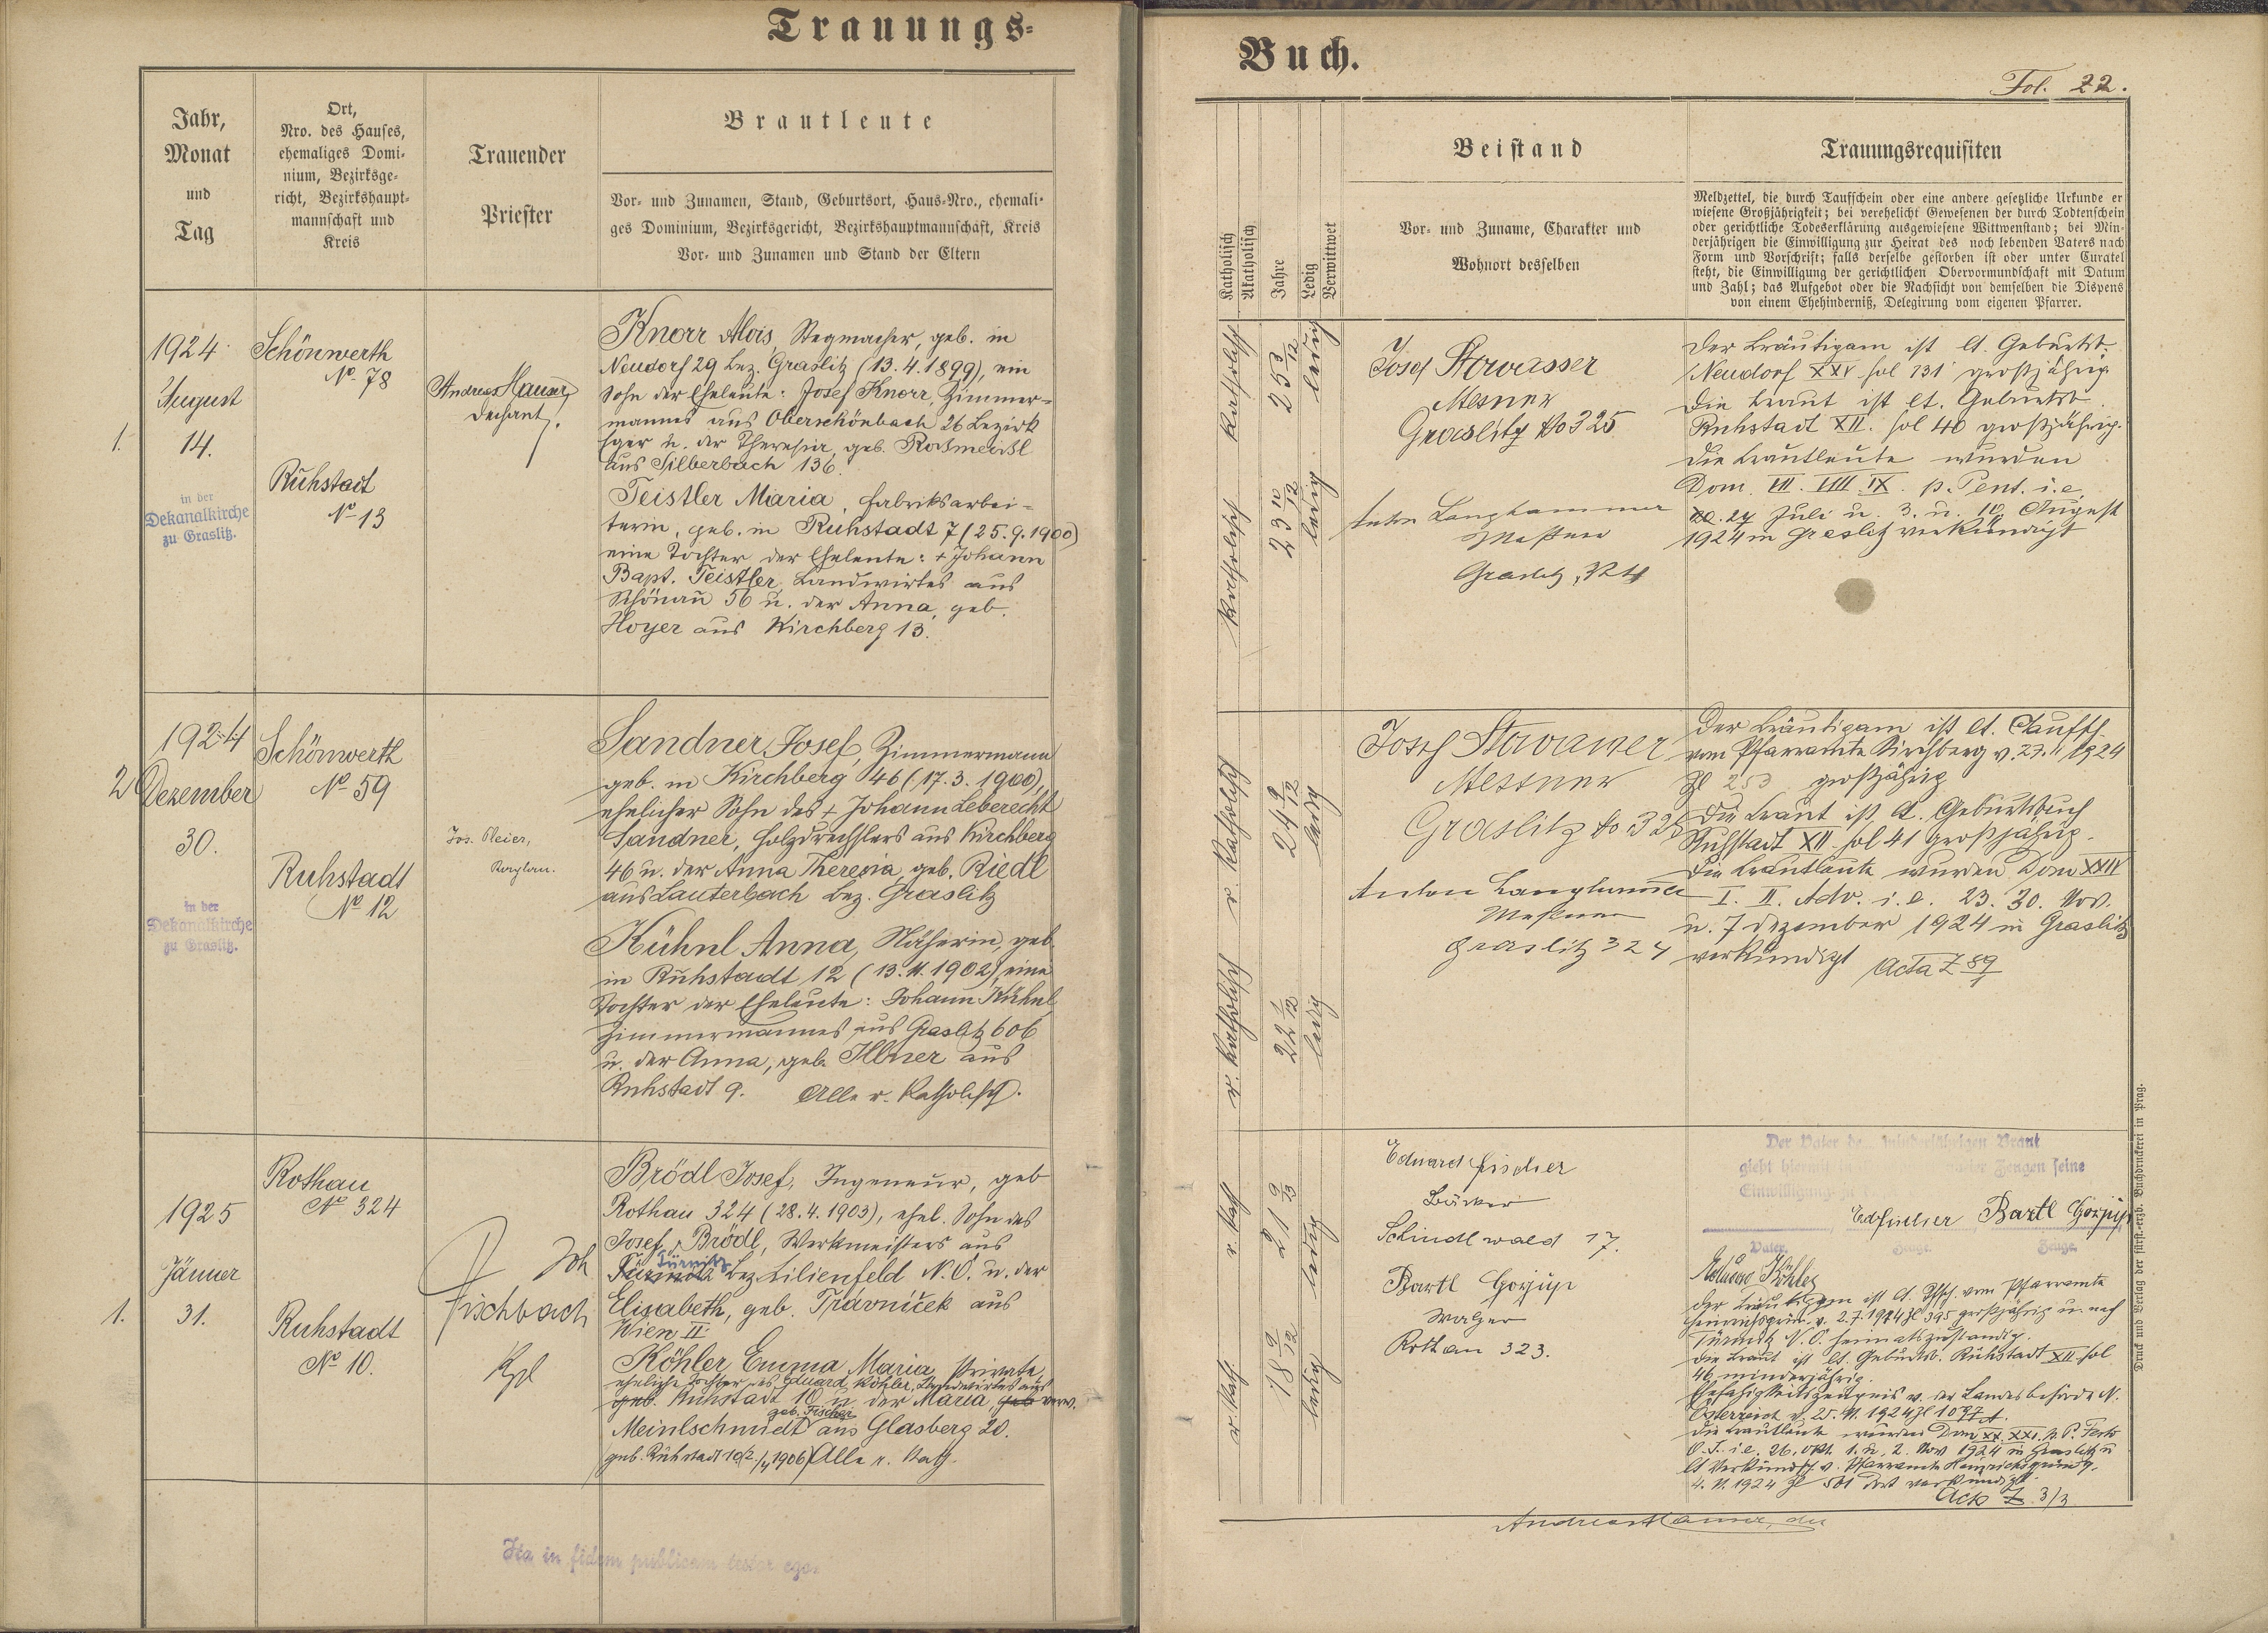 Trauungs-
Jahr,
Monat
und
Tag
Ort,
Nro. des Hauses,
ehemaliges Domi-
nium, Bezirksge-
richt, Bezirkshaupt-
mannschaft und
Kreis
Trauender
Priester
Brautleute
Vor- und Zunamen, Stand, Geburtsort, Haus-Nro., ehemali-
ges Dominium, Bezirksgericht, Bezirkshauptmannschaft, Kreis
Vor- und Zunamen und Stand der Eltern
1.
1924
August
14.
in der
Dekanalkirche
zu Graslitz.
Schönwerth
No. 78
Ruhstadt
No 13
Andreas Hauser,
Dechant.
Knorr Alois, Stegmacher, geb. in
Neudorf 29 Bez. Graslitz (13.4.1899), ein
Sohn der Eheleute: Josef Knorr, Zimmer-
mannes aus Oberschönbach 26 Bezirk
Eger u. der Theresia, geb.
aus Silberbach 136.
Teistler Maria, Fabriksarbei-
terin, geb. in Ruhstadt 7 (25.9.1900)
eine Tochter der Eheleute: + Johann
Bapt. Teistler, Landwirtes aus
Schönau 56 u. der Anna, geb.
Hoyer aus Kirchberg 13.
2
1924
Dezember
30.
in der
Dekanalkirche
zu Graslitz.
Schönwerth
No 59
Ruhstadt
No 12
Jos. Pleier,
Kaplan.
Sandner Josef, Zimmermann
geb. in Kirchberg 46 (17.3.1900),
ehelicher Sohn des + Johann Leberecht
Sandner, Holzdrechslers aus Kirchberg
46 u. der Anna Theresia, geb. Riedl
aus Lauterbach Bez. Graslitz
Kühnl Anna, Näherin, geb.
in Ruhstadt 12 (13.11.1902), eine
Tochter der Eheleute: Johann Kühnl
Zimmermannes aus Graslitz 606
u. der Anna, geb. Illner aus
Ruhstadt 9. Alle r. katholisch.
1.
1925
Jänner
31.
Rothau
No 324
Ruhstadt
No 10.
Joh
Fischbach
Kpl
Brödl Josef, Ingeneur, geb
Rothau 324 (28.4.1903), ehel. Sohn des
Josef Brödl, Werkmeisters aus
Türnitz
Bez. Lilienfeld N.Ö. u. der
Elisabeth, geb. Trávníček aus
Wien II.
Köhler Emma Maria, Private,
eheliche Tochter des Eduard Köhler, Landwirtes aus
geb. Ruhstadt 10 u. der Maria, geb verw.
geb. Fischer
Meinlschmidt aus Glasberg 20.
geb. Ruhstadt 10 /4 1906) Alle r. kath.
Ita in fidem publicam testor ego.
Buch.
Fol. 22.
Katholisch
Akatholisch
Jahre
Ledig
Verwittwet
Beistand
Vor- und Zuname, Charakter und
Wohnort desselben
Trauungsrequisiten
Meldzettel, die durch Taufschein oder eine andere gesetzliche Urkunde er
wiesene Großjährigkeit; bei verehelicht Gewesenen der durch Todtenschein
oder gerichtliche Todeserklärung ausgewiesene Wittwenstand; bei Min-
derjährigen die Einwilligung zur Heirat des noch lebenden Vaters nach
Form und Vorschrift; falls derselbe gestorben ist oder unter Curatel
steht, die Einwilligung der gerichtlichen Obervormundschaft mit Datum
und Zahl; das Aufgebot oder die Nachsicht von demselben die Dispens
von einem Ehehinderniß, Delegirung vom eigenen Pfarrer.
katholisch
25 3/12
ledig
katholisch
23 10/12
ledig
Josef Stowasser
Mesner
Graslitz No 325
Anton Langhammer
Meßner
Graslitz, 324
Der Bräutigam ist lt. Geburtsb.
Neudorf XXV fol 131 großjährig
Die Braut ist lt. Geburtsb.
Ruhstadt XII. fol 40 großjährig.
Die Brautleute wurden
Dom. VII. VIII IX. p. Pent. i.e
27 Juli u. 3. u. 10. August
1924 in Graslitz verkündigt
r. katholisch
24 9/12
ledig
r. katholisch
22 1/12
ledig
Josef Stowasser
Messner
Graslitz No 325
Anton Langhammer
Meßner
Graslitz 324
Der Bräutigam ist lt. Taufsch.
vom Pfarramte Kirchberg v. 23.11 1924
Zl 253 großjährig
Die Braut ist lt. Geburtsbuch
Ruhstadt XII fol 41 großjährig.
Die Brautleute wurden Dom XXIV
I. II. Adv. i.e. 23. 30. Nov.
u. 7 Dezember 1924 in Graslitz
verkündigt Acta Z 89
r. kath
21 9/12
ledig
r. kath.
18 9/12
ledig
Eduard Fischer
Bäcker
Schindlwald 17.
Bartl Gorjup
Walzer
Rothau 323.
Der Vater der minderjährigen Braut
giebt hiermit in Zeugen seine
Einwilligung
Ed Fischer Bartl Gorjup
Vater. Zeuge. Zeuge.
Eduard Köhler
Der Bräutigam ist lt. Tfsch. vom Pfarramte
Heinrichsgrün v. 2.7.1924 Zl 395 großjährig u. nach
Türnitz N.Ö. heimatszuständig.
Die Braut ist lt. Geburtsb. Ruhstadt XII fol
46 minderjährig.
Ehefähigkeitszeugnis v. der Landesbehörde N.
Österreich v. 25. 1924 Zl 1097
Die Brautleute wurden Dom XX. XXI. p. P. Festo
O.S. i.e. 26. Okt. 1. u. 2. Nov 1924 in Graslitz u
lt Verkündsch. v. Pfarramte Heinrichsgrün v.
4. 11. 1924 Zl 501 dort verkündigt.
Acta Z. 3/3
Andreas Hauser,
Druck und Verlag der fürst.-erzb. Buchdruckerei in Prag.